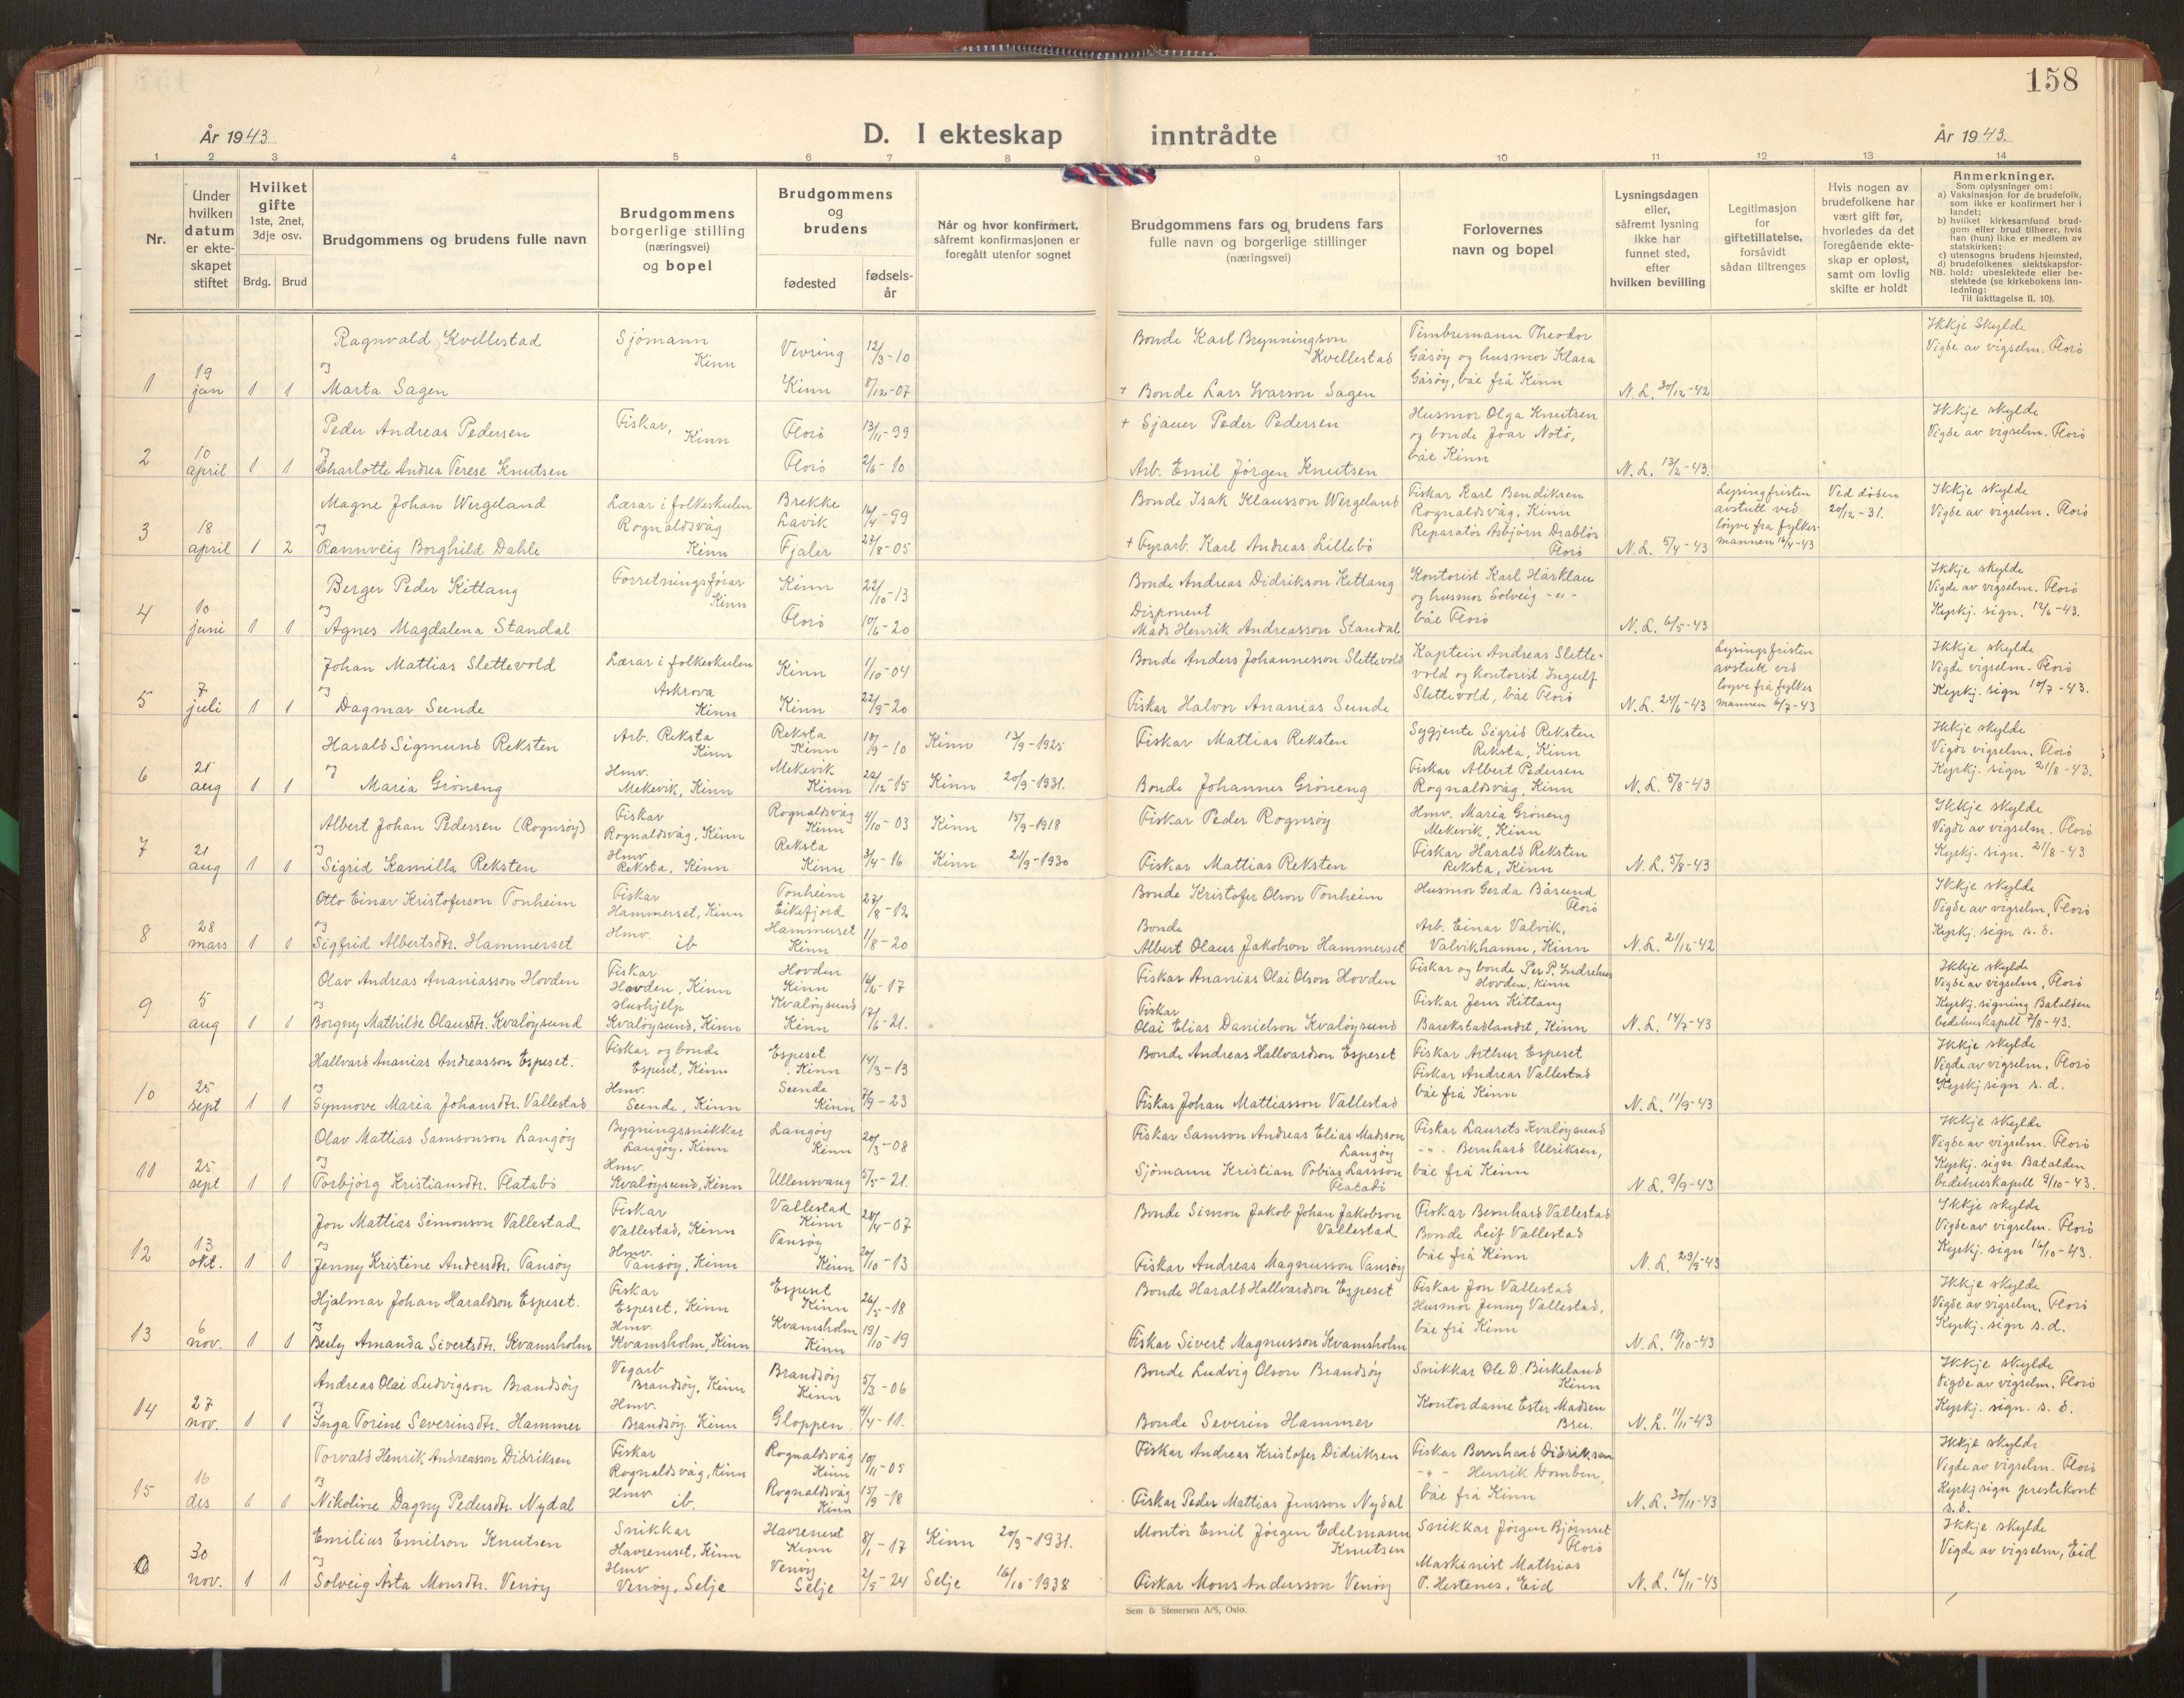 158
År 1943
D. I ekteskap inntrådte
År 1943.
1 2 3 4 5 6 7 8 9 10 11 12 13 14
Nr.
Under hvilken datum er ekteskapet stiftet
Hvilket gifte 1ste, 2net, 3dje osv.
Brdg. Brud
Brudgommens og brudens fulle navn
Brudgommens borgerlige stilling (næringsvei) og bopel
Brudgommens og brudens
fødested
fødsels-år
Når og hvor konfirmert, såfremt konfirmasjonen er foregått utenfor sognet
Brudgommens fars og brudens fars fulle navn og borgerlige stillinger (næringsvei)
Forlovernes navn og bopel
Lysningsdagen eller, såfremt lysning ikke har funnet sted, efter hvilken bevilling
Legitimasjon for giftetillatelse, forsåvidt sådan tiltrenges
Hvis nogen av brudefolkene har vært gift før, hvorledes da det foregående ekteskap er opløst, samt om lovlig skifte er holdt
Anmerkninger.
Som oplysninger om:
a) Vaksinasjon for de brudefolk, som ikke er konfirmert her i landet;
b) hvilket kirkesamfund brudgom eller brud tilhører, hvis han (hun) ikke er medlem av statskirken;
c) utensogns brudens hjemsted,
d) brudefolkenes slektskapsforhold: ubeslektede eller beslektede (se kirkebokens innledning:
NB.
Til iakttagelse II. 10).
Ragnvald Kvellestad Sjömann Kinn Vevring 12/3-10 Bonde Karl Brynningson Kvellestad Timbremann Theodor Gåsöy og husmor Klara Gåsöy, båe frå Kinn Ikkje Skylde Vigde av vigselm. Florö
1 19 jan 1 1 og Marta Sagen Kinn 8/12-07 + Bonde Lars Ivarson Sagen N.L. 30/12-42
Peder Andreas Pedersen Fiskar, Kinn Florö 13/11-99 + Sjauer Peder Pedersen Husmor Olga Knutsen og bonde Ivar Notö, båe Kinn Ikkje skylde Vigde av vigselm. Florö
2 10 april 1 1 og Charlotte Andrea Terese Knutsen Florö 2/6-10 Arb. Emil Jörgen Knutsen N.L. 13/2-43.
Magne Johan Wergeland Lærar i folkeskulen Rognaldsvåg Kinn Brekke Lavik 16/4-99 Bonde Isak Klausson Wergeland Fiskar Karl Bendiksen Rognaldsvåg, Kinn Lysingfristen avstutt ved löyve fra fylkesmannen 16/4-43 Ved döden 20/12-31. Ikkje skylde Vigde av vigselm. Florö
3 18 april 1 2 og Rannveig Borghild Dahle Fjaler 27/8-05 + Fyrarb. Karl Andreas Lillebö Reparatör Asbjörn Drablös Florö N.L. 5/4-43
Berger Peder Kittang Forretningsförar Kinn Kinn 22/10-13 Bonde Andreas Didrikson Kittang Kontorist Karl Hårklau og husmor Solveig -"- båe Florö Ikkje skylde Vigde av vigselm. Florö Kyrkj. sign. 12/6-43.
4 10 juni 1 1 og Agnes Magdalena Standal Florö 10/6-20 Disponent Mads Henrik Andreasson Standal N.L. 6/5-43
Johan Mattias Slettevold Lærar i folkeskulen Askrova Kinn Kinn 1/10-04 Bonde Anders Johannesson Slettevold Kaptein Andreas Slettevold og kontorist Ingulf Slettevold, båe Florö Lysingsfristen avstutt ved löyve frå fylkesmannen 6/7-43 Ikkje skylde Vigde vigselm. Florö Kyrkj. sign 10/7-43.
5 7 juli 1 1 og Dagmar Sunde Kinn 22/9-20 Fiskar Halvor Ananias Sunde N.L. 24/6-43
Harald Sigmund Reksten Arb. Reksta Kinn Reksta Kinn 18/9-10 Kinn 13/9-1925 Fiskar Mattias Reksten Sygjente Sigrid Reksten Reksta, Kinn Ikkje skylde Vigde vigselm. Florö Kyrkj. sign 21/8-43.
6 21 aug 1 1 og Maria Gröneng Hmv. Mekevik, Kinn Mekevik Kinn 22/12-15 Kinn 20/9-1931. Bonde Johannes Gröneng Fiskar Albert Pedersen Rognaldsvåg, Kinn N.L. 5/8-43
Albert Johan Pedersen (Rognsöy) Fiskar Rognaldsvåg, Kinn Rognaldsvåg Kinn 4/10-03 Kinn 15/9-1918 Fiskar Peder Rognsöy Hmv. Maria Gröneng Mekevik, Kinn Ikkje skylde Vigde av vigselm. Florö Kyrkj. sign. 21/8-43
7 21 aug 1 1 og Sigrid Kamilla Reksten Hmv Reksta, Kinn Reksta Kinn 3/4-16 Kinn 21/9-1930 Fiskar Mattias Reksten Fiskar Harald Reksten Reksta, Kinn N.L. 5/8-43
Otto Einar Kristoferson Tonheim Fiskar Hammerset, Kinn Tonheim Eikefjord 27/8-12 Bonde Kristofer Olson Tonheim Husmor Gerda Båsund Florö Ikkje skylde Vigde av vigselm, Florö Kyrkj. sign s.d.
8 28 mars 1 1 og Sigfrid Albertsdtr. Hammerset Hmv. ib Hammerset Kinn 1/8-20 Bonde Albert Olaus Jakobson Hammerset Arb. Einar Valvik, Valvikhamn, Kinn N.L. 21/12-42
Olav Andreas Ananiasson Hovden Fiskar Hovden, Kinn Hovden Kinn 14/2-17 Fiskar Ananias Olai Olson Hovden Fiskar og bonde Per P. Indrehus Hovden, Kinn Ikkje skylde Vigde av vigselm, Florö Kyrkj. signing Batalden bedehuskapell 7/8-43.
9 5 aug 1 1 og Borgny Mathilde Olausdtr. Kvalöysund Hushjelp Kvalöysund, Kinn Kvalöysund Kinn 17/6-21. Fiskar Olai Elias Danielson Kvalöysund Fiskar Jens Kittang Barekstadlandet, Kinn N.L. 14/7-43
Hallvard Ananias Andreasson Espeset. Fiskar og bonde Espeset, Kinn Espeset Kinn 14/3-13 Bonde Andreas Hallvardson Espeset Fiskar Arthur Espeset Fiskar Andreas Vallestad båe frå Kinn Ikkje skylde Vigde av vigselm. Florö Kyrkj sign s.d.
10 25 sept 1 1 og Synnove Maria Johansdtr. Vallestad Hmv. Sunde, Kinn Sunde Kinn 7/9-23 Fiskar Johan Mattiasson Vallestad N.L. 11/9-43
Olav Mattias Samsonson Langöy Bygningssnikkar Langöy, Kinn Langöy Kinn 20/3-08 Fiskar Samson Andreas Elias Madsson Langöy Fiskar Laurets Kvalöysund -"- Bernhard Ulriksen, båe frå Kinn Ikkje skylde Vigde av vigselm. Florö Kyrkj. sign Batalden bedehuskapell 9/10-43.
11 25 sept 1 1 og Torbjörg Kristiansdtr. Flatabö Hmv. Kvalöysund, Kinn Ullensvang 5/5-21. Sjömann Kristian Tobias Larsson Flatabö N.L. 9/9-43
Jon Mattias Simonson Vallestad Fiskar Vallestad, Kinn Vallestad Kinn 28/4-07 Bonde Simon Jakob Johan Jakobson Vallestad Fiskar Bernhard Vallestad Bonde Leif Vallestad båe frå Kinn Ikkje skylde Vigde av vigselm. Florö Kyrkj. sign 16/10-43.
12 13 okt. 1 1 og Jenny Kristine Andersdtr. Tansöy Hmv. Tansöy, Kinn Tansöy Kinn 20/10-13 Fiskar Andreas Magnusson Tansöy N.L. 29/9-43
Hjalmar Johan Haraldson Espeset. Fiskar Espeset, Kinn Espeset Kinn 26/5-18 Bonde Harald Hallvardson Espeset Fiskar Jon Vallestad Husmor Jenny Vallestad, båe frå Kinn Ikkje skylde Vigde av vigselm. Florö Kyrkj. sign s.d.
13 6 nov. 1 1 og Berly Amanda Sivertsdtr. Kvamsholm Hmv. Kvamsholm, Kinn Kvamsholm Kinn 19/10-19 Fiskar Sivert Magnusson Kvamsholm N.L. 18/10-43
Andreas Olai Ludvigson Brandsöy Vegarb Brandsöy, Kinn Brandsöy Kinn 5/3-06 Bonde Ludvig Olson Brandsöy Snikkar Ole D. Birkeland Kinn Ikkje skylde Vigde av vigselm. Florö Kyrkj. sign. s.d.
14 27 nov. 1 1 og Inga Torine Severinsdtr. Hammer Hmv. Brandsöy Kinn Gloppen 4/4-11. Bonde Severin Hammer Kontordame Ester Madsen Bru. N.L. 11/11-43
Torvald Henrik Andreasson Didriksen Fiskar Rognaldsvåg, Kinn Rognaldsvåg Kinn 10/11-05 Fiskar Andreas Kristofer Didriksen Fiskar Bernhard Didriksen -"- Henrik Domben, båe frå Kinn Ikkje skylde Vigde av vigselm. Florö Kyrkj sign prestekont s.d.
15 16 des 1 1 og Nikoline Dagny Pedersdtr. Nydal Hmv ib. Rognaldsvåg Kinn 15/9-18 Fiskar Peder Mattias Jensson Nydal N.L. 30/11-43
Emilius Emilson Knutsen Snikkar Havreneset, Kinn Havreneset Kinn 8/1-17 Kinn 20/9-1931. Montör Emil Jörgen Edelmann Knutsen Snikkar Jörgen Björnset Florö Ikkje skylde Vigde av vigselm, Eid
30 nov. 1 1 og Solveig Asta Monsdtr. Venöy Hmv Venöy, Selje Venöy Selje 2/5-24 Selje 16/10-1938 Fiskar Mons Andersson Venöy Maskinist Mathias P. Hestenes, Eid N.L. 16/11-43
Sem & Stenersen A/S, Oslo.